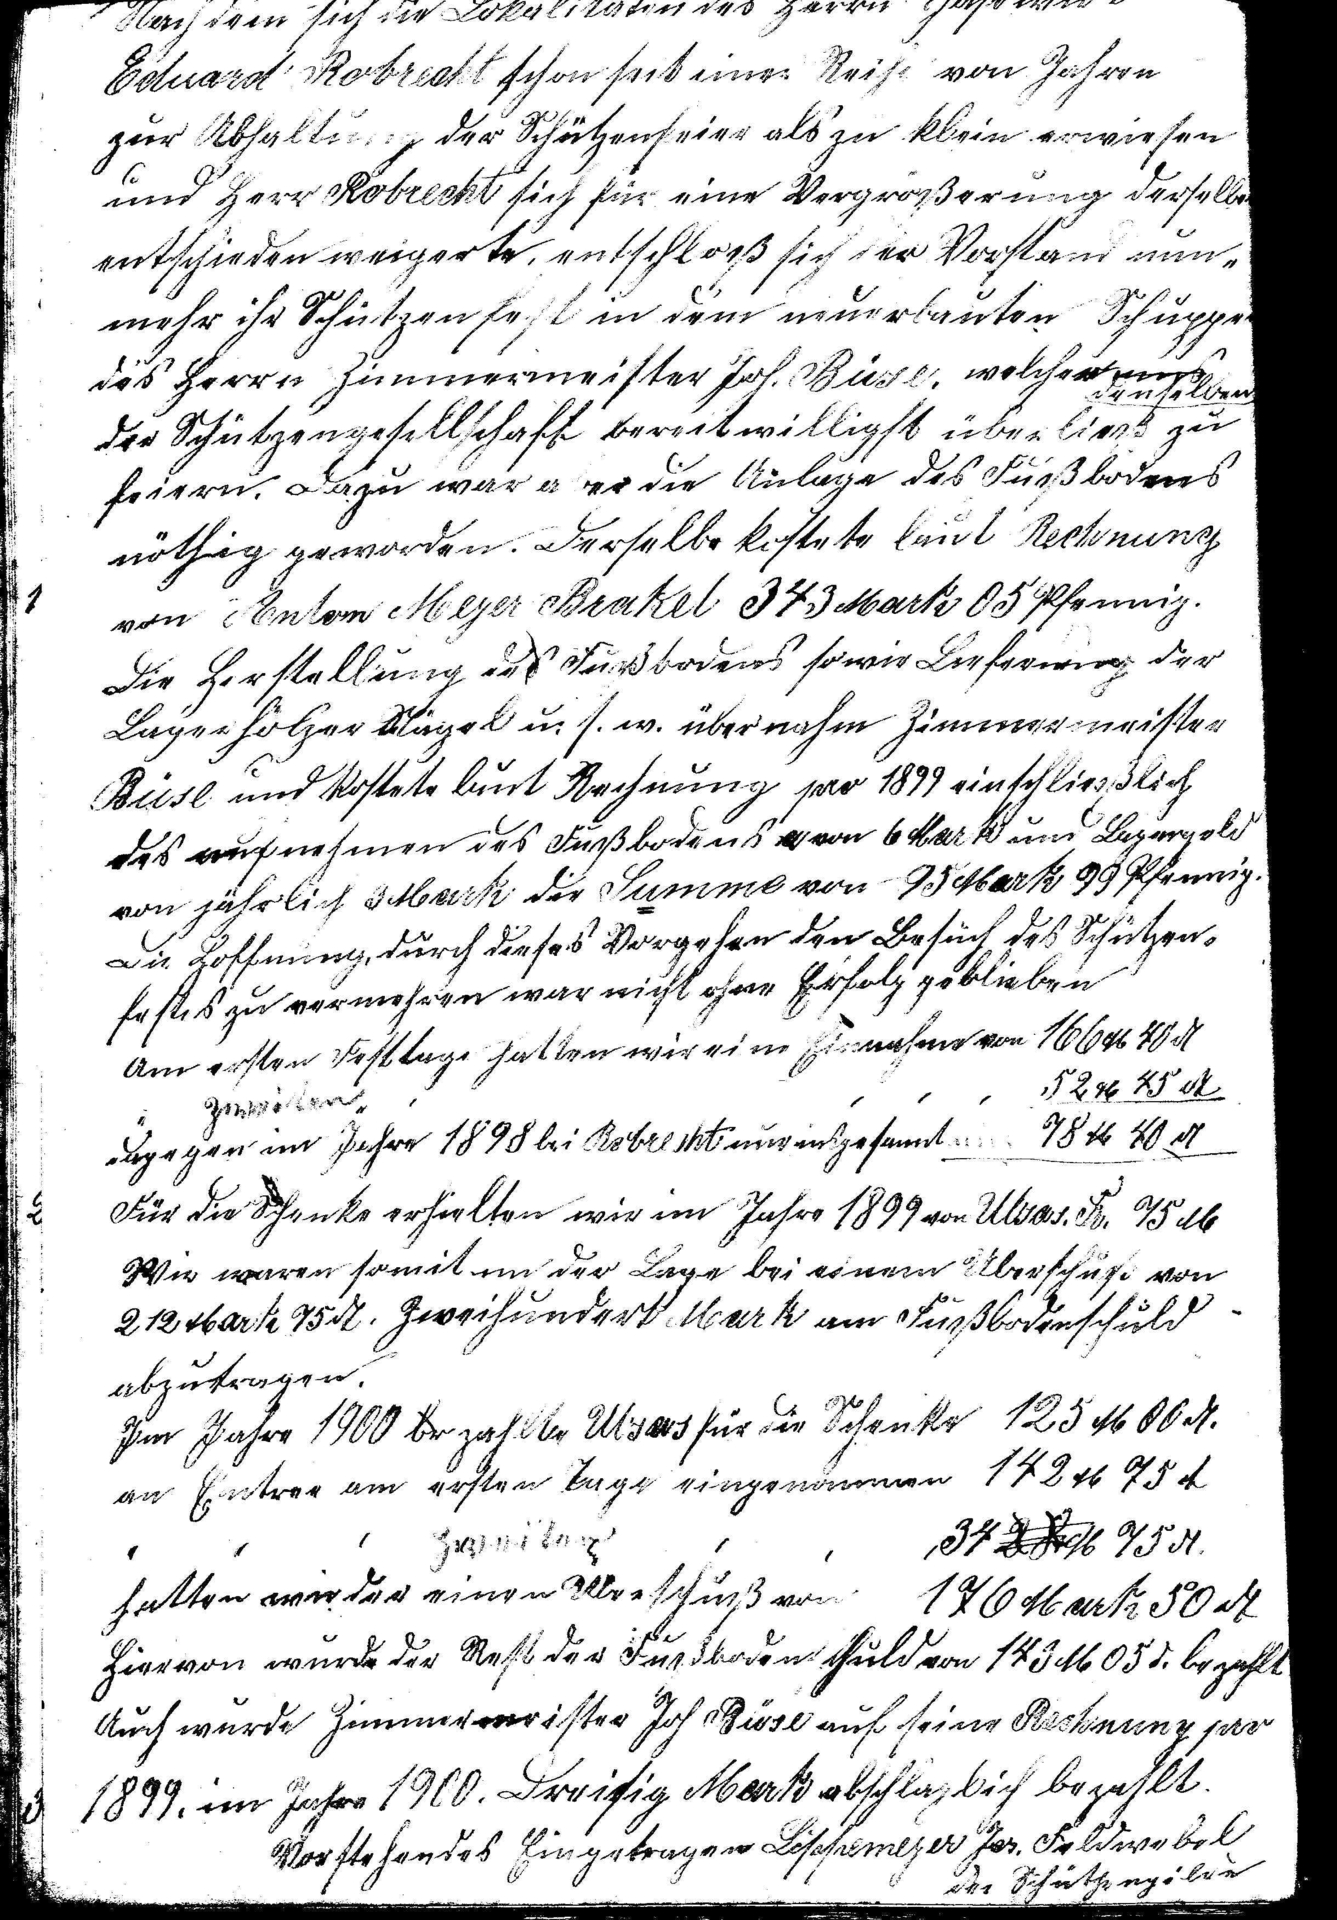 Nachdem sich die Lokalitäten des Herrn Gastwirt
Eduard Robrecht schon seit einer Reihe von Jahren
zur Abhaltung der Schützenfeier als zu klein erwiesen
und Herr Robrecht sich für eine Vergrößerung derselben
entschieden weigerte, entschloß sich der Vorstand nun-
mehr ihr Schützenfest in dem neuerbauten Schuppen
des Herrn Zimmermeister Joh. Büse, welcher uns
denselben
der Schützengesellschaft bereitwilligst überließ zu
feiern. Dazu war aber die Anlage des Fußbodens
nöthig geworden. Derselbe kostete laut Rechnung
1
von Anton Meyer Brakel 343 Mark 05 Pfennig.
Die Herstellung des Fußbodens sowie Lieferung der
Lagerhölzer Nägel u. s. w. übernahm Zimmermeister
Büse und kostete laut Rechnung pro 1899 einschließlich
des aufnehmen des Fußbodens von 6 Mark und Lagergeld
von jährlich 3 Mark die Summe von 95 Mark 99 Pfennig.
Die Hoffnung, durch dieses Vorgehen den Besuch des Schützen-
festes zu vermehren war nicht ohne Erfolg geblieben
Am ersten Festtage hatten wir eine Einnahme von 166 M 40 d
" zweiten " " " " 52 M 45 d
dagegen im Jahre 1898 bei Robrecht nur insgesamt 78 M 40 d
2
Für die Schenke erhielten wir im Jahre 1899 von Fr. 75 M
Wir waren somit in der Lage bei einem Überschuß von
212 Mark 75 d. Zweihundert Mark am Fußbodenschuld
abzutragen.
Im Jahre 1900 bezahlte für die Schenke 125 M 00 d.
an Entree am ersten Tage eingenommen 142 M 75 d
" " " zweiten " " 34 M 75 d.
hatten wieder einen Überschuß von 176 Mark 50 d
Hiervon wurde der Rest der Fußbodenschuld von 143 M 05 d. bezahlt
Auch wurde Zimmermeister Joh Büse auf seine Rechnung pro
3
1899. im Jahre 1900. Dreißig Mark abschläglich bezahlt.
Vorstehendes Eingetragen Lippemeyer Jos. Feldwebel
der Schützengilde